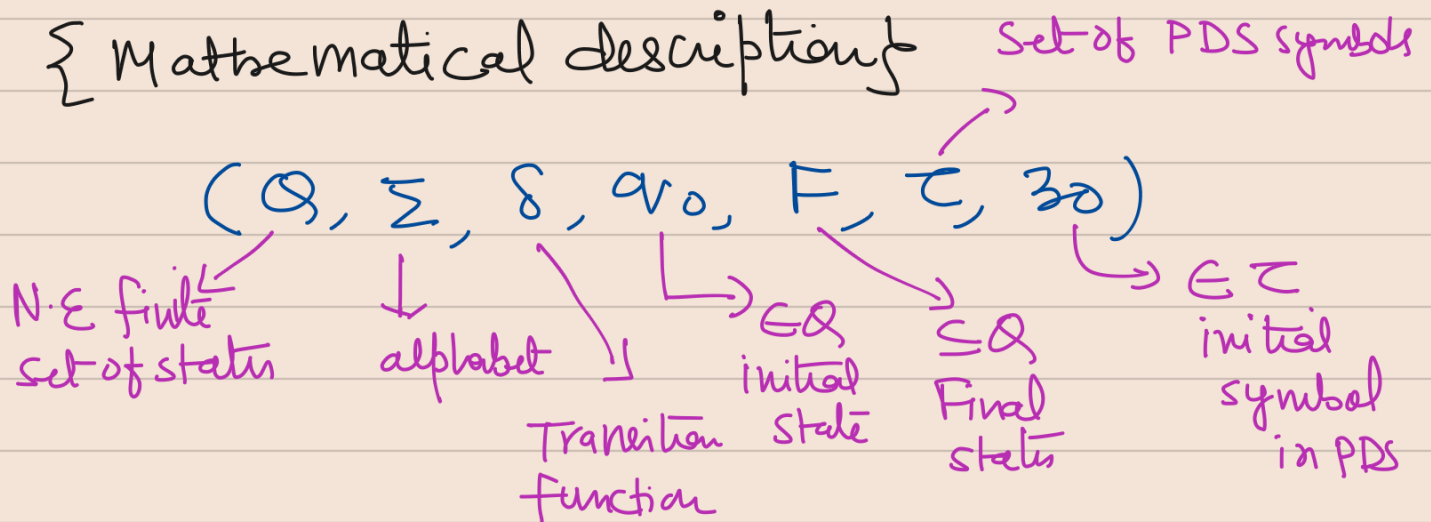 { Mathematical description}
Set of PDS symbols
(Q, Σ, δ, q0, F, τ, z0)
N.E finite
set of states
alphabet
Transition
function
∈Q
initial
state
⊆Q
Final
states
∈ τ
initial
symbol
in PDS